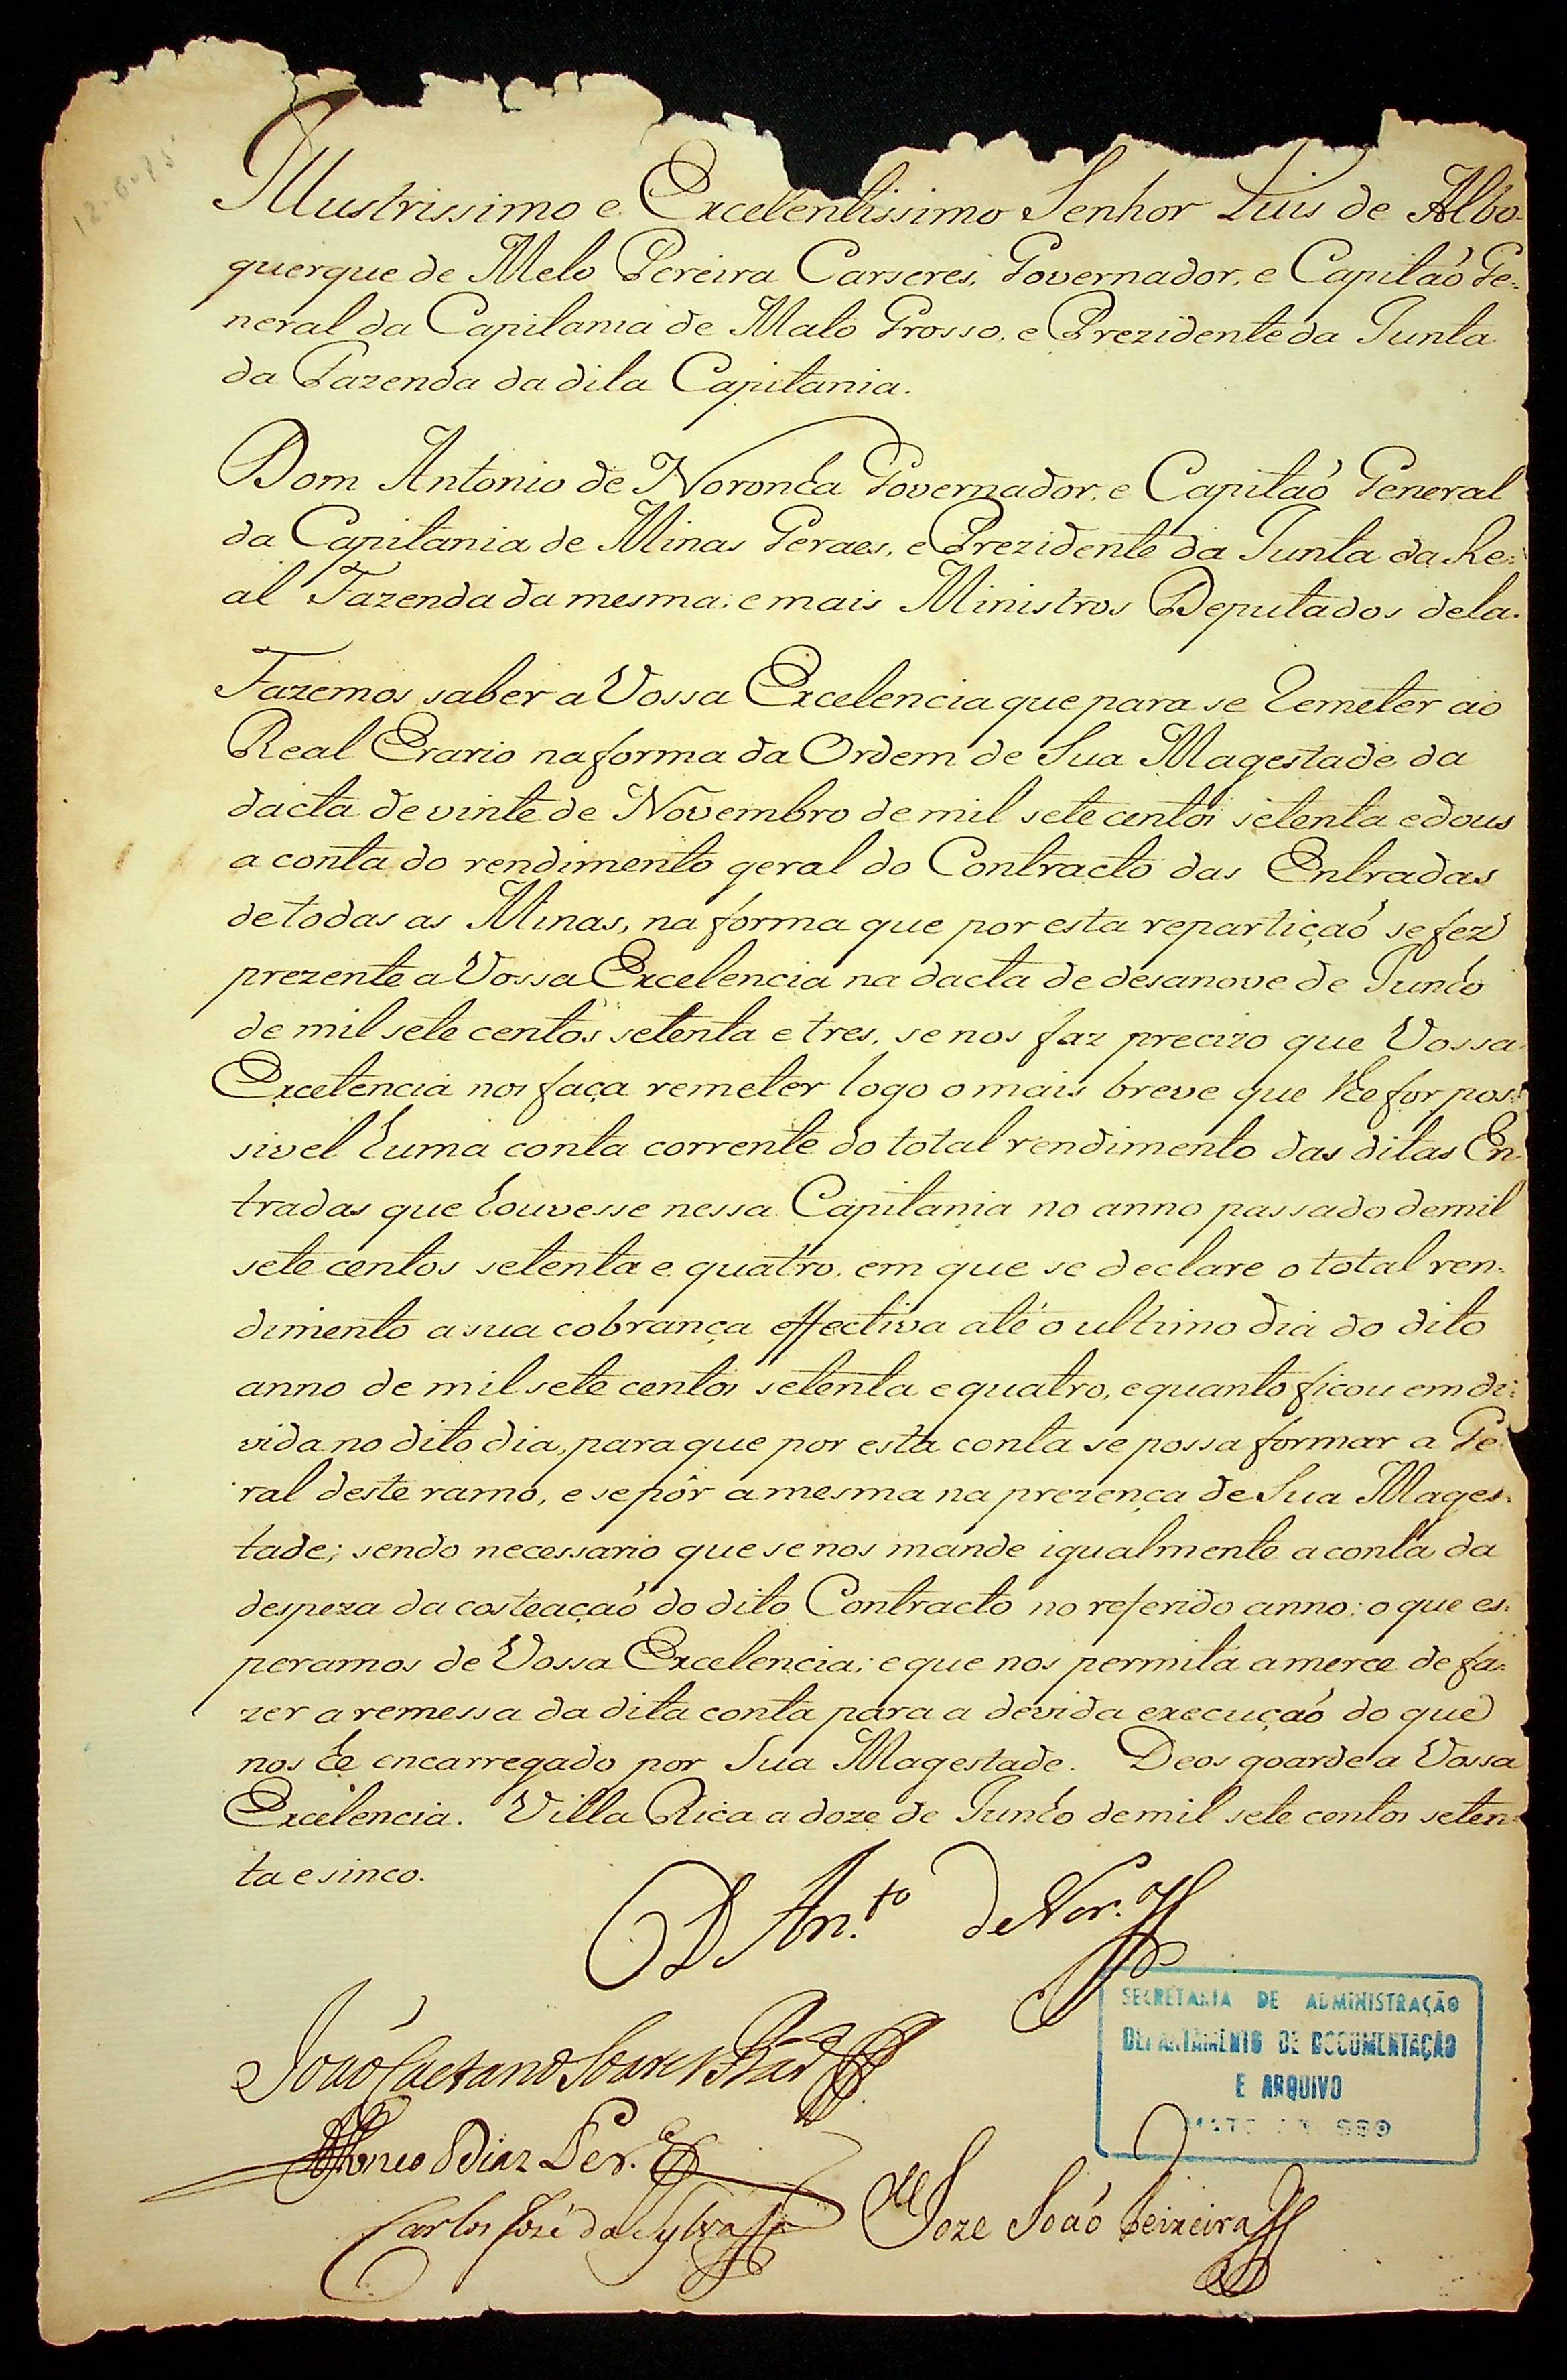 Illustrissimo e Excelentissimo Senhor Luis de Albo-
querque de Melo Pereira Carseres, Governador, e Capitaõ Ge-
neral da Capitania de Mato Grosso, e Prezidente da Junta
da Fazenda da dita Capitania.
Dom Antonio de Noronha Governador, e Capitaõ General
da Capitania de Minas Geraes, e Prezidente da Junta da Re-
al Fazenda da mesma; e mais Ministros Deputados dela.
Fazemos saber a Vossa Excelencia que para se Remeter ao
Real Erario na forma da Ordem de Sua Magestade da
dacta de vinte de Novembro de mil sete centos setenta e dous
a conta do rendimento geral do Contracto das Entradas
de todas as Minas, na forma que por esta repartiçaõ se fez
prezente a Vossa Excelencia na dacta de desanove de Junho
de mil sete centos setenta e tres, se nos faz precizo que Vossa
Excelencia nos faça remeter logo o mais breve que lhe for pos-
sivel huma conta corrente do total rendimento das ditas En-
tradas que houvesse nessa Capitania no anno passado de mil
sete centos setenta e quatro, em que se declare o total ren-
dimento a sua cobrança effectiva até o ultimo dia do dito
anno de mil sete centos setenta e quatro, e quanto ficou em di-
vida no dito dia, para que por esta conta se possa formar a Ge-
ral deste ramo, e se pôr a mesma na prezença de Sua Mages-
tade; sendo necessario que se nos mande igualmente a conta da
despeza da costeaçaõ do dito Contracto no referido anno: o que es-
peramos de Vossa Excelencia; e que nos permita a merce de fa-
zer a remessa da dita conta para a devida execuçaõ do que
nos he encarregado por Sua Magestade. Deos goarde a Vossa
Excelencia. Villa Rica a doze de Junho de mil sete centos seten-
ta e sinco.
D An.to de Nor.
João Caetano Soares
Diaz Per.
Carlos José da Sylva
Joze Joaõ Teixeira
SECRETARIA DE ADMINISTRAÇÃO
DEPARTAMENTO DE DOCUMENTAÇÃO
E ARQUIVO